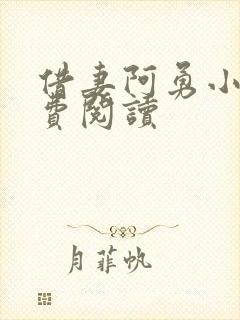 借妻阿勇小
費閱讀
月菲帆